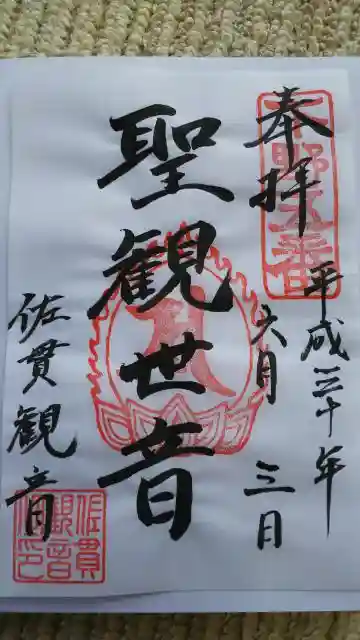 奉拝
下野五番
平成三十年
六月三日
聖観世音
佐貫観音
佐貫
観音